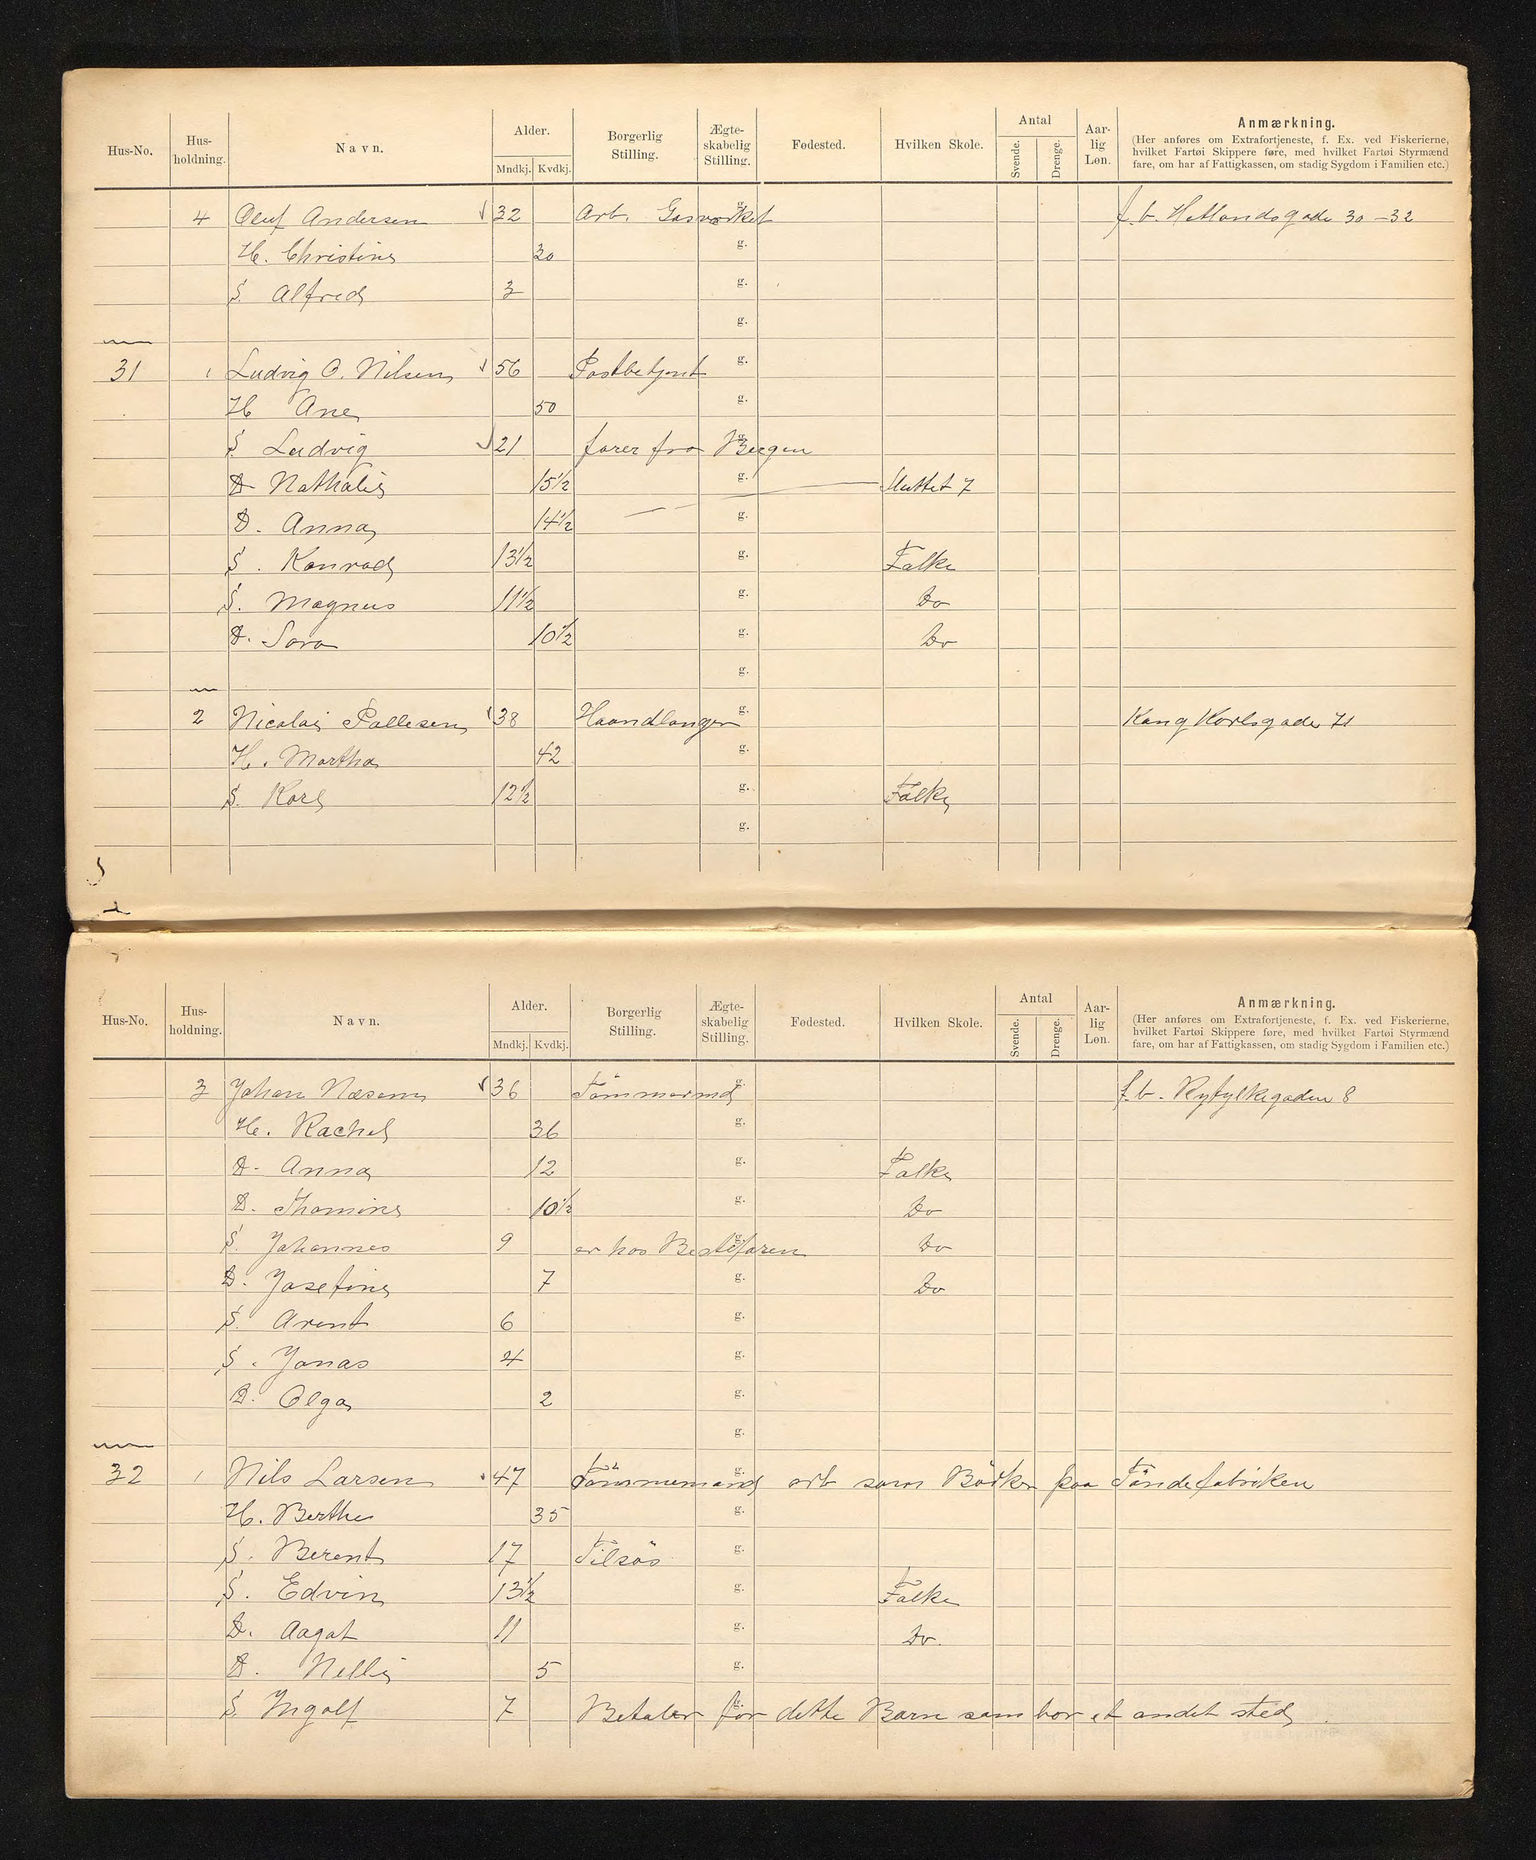 Hus-No. Hus-holdning. Navn. Alder. Mndkj. Kvdkj. Borgerlig Stilling. Ægte-skabelig Stilling. Fødested. Hvilken Skole. Antal Svende. Drenge. Aar-lig Løn. Anmærkning.
(Her anføres om Extrafortjeneste, f. Ex. ved Fiskerierne, hvilket Fartøi Skippere føre, med hvilket Fartøi Styrmænd fare, om har af Fattigkassen, om stadig Sygdom i Familien etc.)
4 Oluf Andersen 32 Arb. Gasværket g. f. b. Hetlandsgade 30-32
H. Christine 30 g.
S. Alfred 3 g.
g.
31 1 Ludvig O. Nilsen 56 Postbetjent g.
H Ane 50 g.
S. Ludvig 21 farer fra Bergen g.
D Nathalie 15½ g. Sluttet 7
D. Anna 14½ g.
S. Konrad 13½ g. Folke
S. Magnus 11½ g. Do
D. Sara 10½ g. Do
g.
2 Nicolai Pallesen 38 Haandlanger g. Kong Karlsgade 71
H. Martha 42 g.
S. Karl 12½ g. Folke
g.
Hus-No. Hus-holdning. Navn. Alder. Mndkj. Kvdkj. Borgerlig Stilling. Ægte-skabelig Stilling. Fødested. Hvilken Skole. Antal Svende. Drenge. Aar-lig Løn. Anmærkning.
(Her anføres om Extrafortjeneste, f. Ex. ved Fiskerierne, hvilket Fartøi Skippere føre, med hvilket Fartøi Styrmænd fare, om har af Fattigkassen, om stadig Sygdom i Familien etc.)
3 Johan Næsem 36 Tömmermd g. f. b. Ryfylkegaden 8
H. Rachel 36 g.
D. Anna 12 g. Folke
D. Thomine 10½ g. Do
S. Johannes 9 er hos Bestefaren g. Do
D. Josefine 7 g. Do
S. Arent 6 g.
S. Jonas 4 g.
D. Olga 2 g.
g.
32 1 Nils Larsen 47 Tömmermand g. arb som Bödker paa Töndefabriken
H. Berthe 35 g.
S. Berent 17 Tilsös g.
S. Edvin 13½ g. Folke
D. Aagot 11 g. Do.
D. Nelli 5 g.
S. Ingolf 7 Betaler for dette Barn som bor et andet sted g.